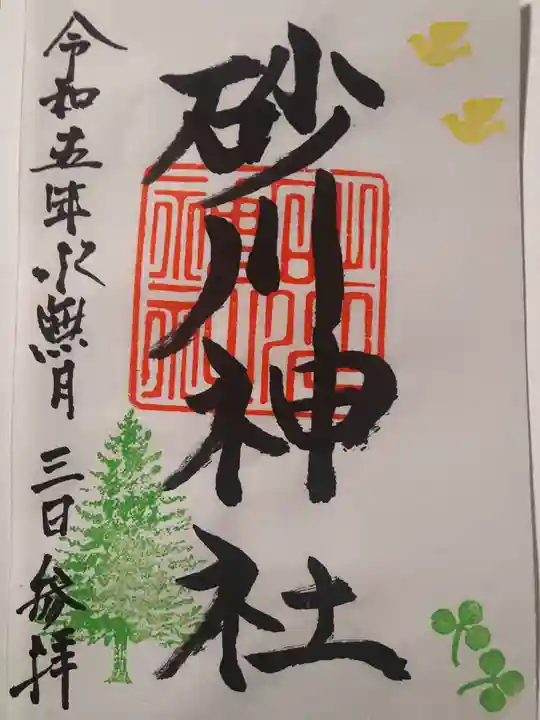 砂川神社
令和五年水無月三日参拝